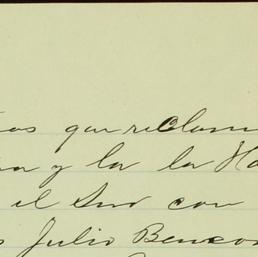 que reclam
y la la Ha
el Sur con
Julio Bencom